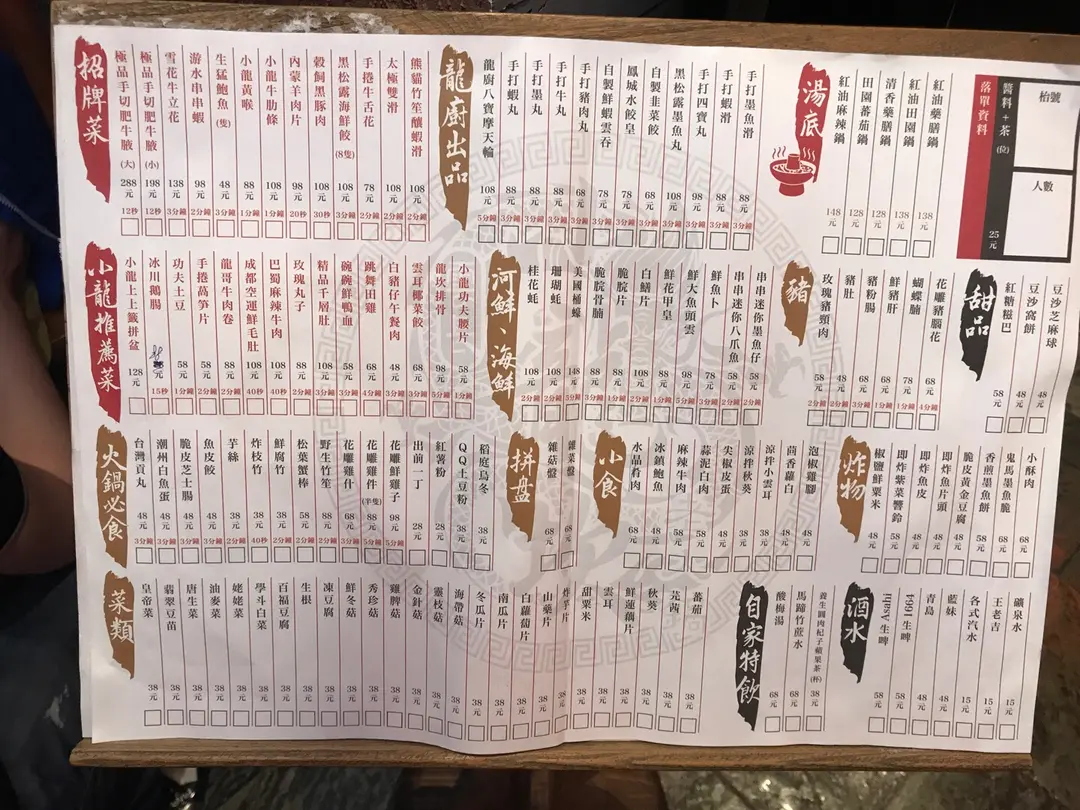 招牌菜
極品手切肥牛腋(大) 288元 12秒
極品手切肥牛腋(小) 198元 12秒
雪花牛立花 138元 3分鐘
游水串串蝦 98元 2分鐘
生猛鮑魚(隻) 48元 3分鐘
小龍黃喉 88元 1分鐘
小龍牛肋條 108元 1分鐘
內蒙羊肉片 98元 20秒
穀飼黑豚肉 108元 30秒
黑松露海鮮餃(8隻) 108元 3分鐘
手捲牛舌花 78元 2分鐘
太極雙滑 108元 2分鐘
熊貓竹笙釀蝦滑 108元 2分鐘
龍廚出品
龍廚八寶摩天輪 108元 5分鐘
手打蝦丸 88元 3分鐘
手打墨丸 88元 3分鐘
手打牛丸 88元 3分鐘
手打豬肉丸 68元 3分鐘
自製鮮蝦雲吞 78元 3分鐘
鳳城水餃皇 78元 3分鐘
自製韭菜餃 68元 3分鐘
黑松露墨魚丸 108元 3分鐘
手打四寶丸 98元 3分鐘
手打蝦滑 88元 3分鐘
手打墨魚滑 88元 3分鐘
湯底
紅油麻辣鍋 148元
田園蕃茄鍋 128元
清香藥膳鍋 128元
紅油田園鍋 138元
紅油藥膳鍋 138元
落單資料
醬料+茶(位) 25元
枱號
人數
小龍推薦菜
小龍上上籤拼盆 128元
冰川鵝腸 88 15秒
功夫土豆 58元 1分鐘
手捲萵筍片 58元 2分鐘
龍哥牛肉卷 88元 2分鐘
成都空運鮮毛肚 108元 40秒
巴蜀麻辣牛肉 108元 40秒
玫瑰丸子 88元 2分鐘
精品千層肚 108元 3分鐘
碗碗鮮鴨血 58元 3分鐘
跳舞田雞 68元 4分鐘
白豬仔午餐肉 48元 3分鐘
雲耳椰菜餃 68元 3分鐘
龍坎排骨 98元 2分鐘
小龍功夫腰片 58元 1分鐘
河鮮、海鮮
桂花蚝 108元 2分鐘
珊瑚蚝 108元 2分鐘
美國桶蠔 148元 5分鐘
脆脘骨腩 88元 3分鐘
脆脘片 88元 2分鐘
白鱔片 108元 2分鐘
鮮花甲皇 88元 1分鐘
鮮大魚頭雲 98元 5分鐘
鮮魚卜 78元 3分鐘
串串迷你八爪魚 58元 2分鐘
串串迷你墨魚仔 58元 2分鐘
豬
玫瑰豬頸肉 58元 2分鐘
豬肚 48元 2分鐘
豬粉腸 68元 3分鐘
鮮豬肝 68元 1分鐘
蝴蝶腩 78元 1分鐘
花雕豬腦花 68元 4分鐘
甜品
紅糖糍巴 58元
豆沙窩餅 48元
豆沙芝麻球 48元
火鍋必食
台灣貢丸 48元 3分鐘
潮州白魚蛋 48元 3分鐘
脆皮芝士腸 48元 3分鐘
魚皮餃 48元 3分鐘
芋絲 38元 2分鐘
炸枝竹 38元 40秒
鮮腐竹 38元 2分鐘
松葉蟹棒 58元 2分鐘
野生竹笙 88元 2分鐘
花雕雞什 68元 3分鐘
花雕雞件(半隻) 88元 5分鐘
花雕鮮雞子 98元 5分鐘
出前一丁 28元
紅薯粉 28元
QQ土豆粉 38元
稻庭烏冬 38元
拼盘
雜菇盤 68元
雜菜盤 68元
小食
水晶肴肉 68元
冰鎮鮑魚 48元
麻辣牛肉 58元
蒜泥白肉 58元
尖椒皮蛋 48元
涼拌秋葵 38元
涼拌小雲耳 38元
茴香蘿白 48元
泡椒雞腳 48元
炸物
椒鹽鮮粟米 48元
即炸紫菜響鈴 58元
即炸魚皮 48元
即炸魚片頭 48元
脆皮黃金豆腐 48元
香煎墨魚餅 58元
鬼馬墨魚脆 68元
小酥肉 68元
菜類
皇帝菜 38元
翡翠豆苗 38元
唐生菜 38元
油麥菜 38元
姥姥菜 38元
學斗白菜 38元
百福豆腐 38元
生根 38元
凍豆腐 38元
鮮冬菇 38元
秀珍菇 38元
雞脾菇 38元
金針菇 38元
靈枝菇 38元
海帶 38元
冬瓜片 38元
南瓜片 38元
白蘿蔔片 38元
山藥片 38元
炸芋片 38元
甜粟米 38元
雲耳 38元
鮮蓮藕片 38元
秋葵 38元
芫茜 38元
蕃茄 38元
自家特飲
酸梅湯 68元
馬蹄竹蔗水 68元
養生圓肉杞子蘋果茶(杯) 38元
酒水
Asahi生啤 58元
1664生啤 58元
青島 48元
藍妹 48元
各式汽水 15元
王老吉 15元
礦泉水 15元